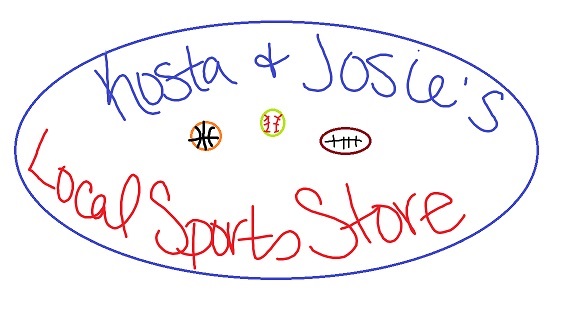 Kosta & Josie's
Local Sports Store